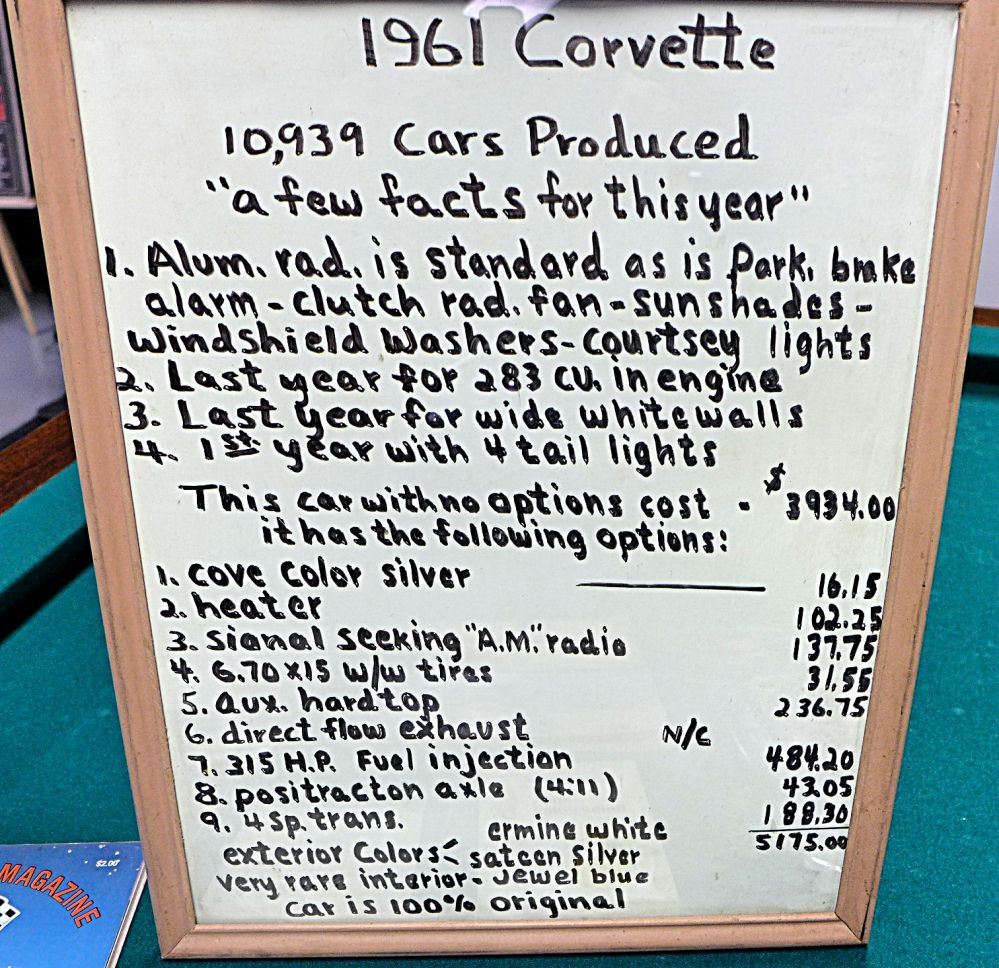 1961 Corvette
10,939 Cars Produced
"a few facts for this year"
1. Alum. rad. is standard as is Park. brake
alarm-clutch rad. fan-sunshades-
windshield washers-courtsey lights
2. Last year for 283 cu. in engine
3. Last year for wide whitewalls
4. 1st. year with 4 tail lights
This car with no options cost - $3934.00
it has the following options:
1. cove color silver — 16.15
2. heater 102.25
3. signal seeking "A.M." radio 137.75
4. 6.70 x15 w/w tires 31.55
5. aux. hardtop 236.75
6. direct flow exhaust N/C
7. 315 H.P. Fuel injection 484.20
8. positracton axle (4:11) 43.05
9. 4 sp. trans. 188.30
5175.00
exterior Colors< ermine white
sateen silver
very rare interior- Jewel blue
Car is 100% original
MAGAZINE
$2.00